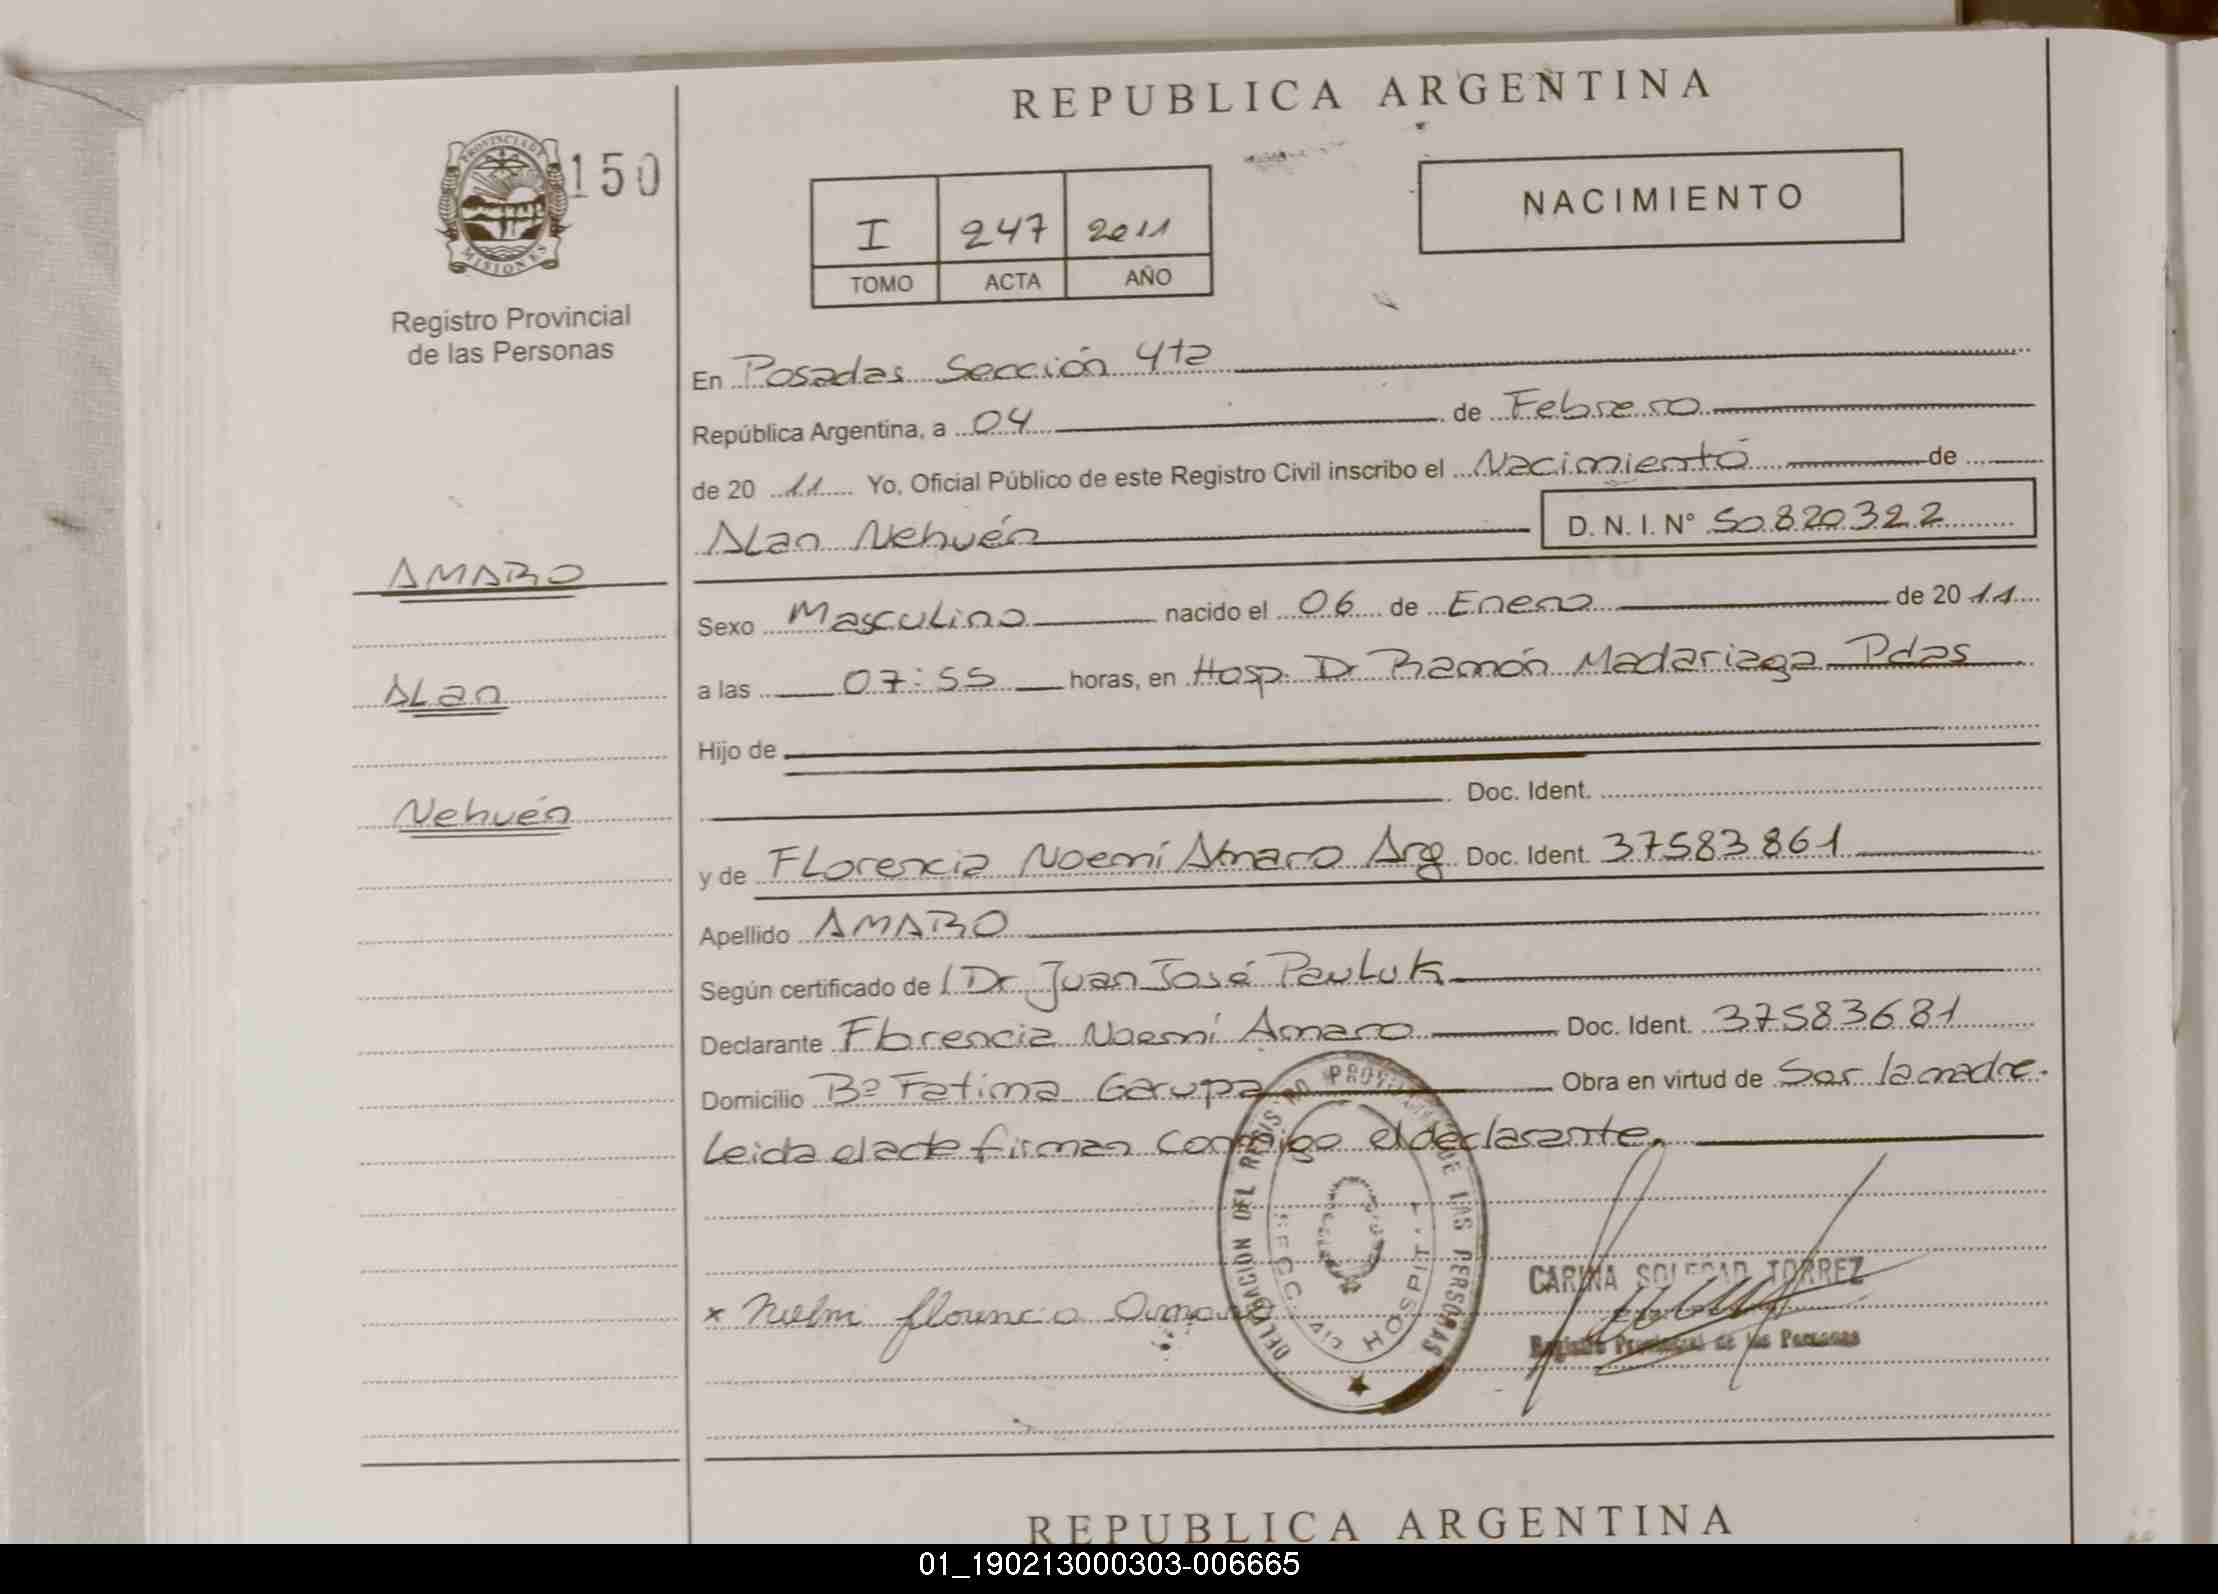 REPUBLICA ARGENTINA
PROVINCIA DE
MISIONES
150
I 247 2011
TOMO ACTA AÑO
NACIMIENTO
Registro Provincial
de las Personas
En Posadas Sección 4ta
República Argentina, a 04 de Febrero
de 20 11 Yo, Oficial Público de este Registro Civil inscribo el Nacimiento de
Alan Nehuén D. N. I. N° 50.820.322
AMARO
Alan
Nehuén
Sexo Masculino nacido el 06 de Enero de 20 11
a las 07:55 horas, en Hosp. Dr Ramón Madariaga Pdas
Hijo de
Doc. Ident.
y de Florencia Noemí Amaro Arg Doc. Ident. 37583861
Apellido AMARO
Según certificado de / Dr Juan José Pauluk
Declarante Florencia Noemí Amaro Doc. Ident. 37583681
Domicilio Bº Fatima Garupa Obra en virtud de Ser la madre.
Leida el acta firman conmigo el declarante.
DELEGACION DEL REGISTRO PROVINCIAL DE LAS PERSONAS
SECC. 4ta HOSPIT.
x florencia Amaro
CARINA SOLEDAD TORREZ
Registro Provincial de las Personas
REPUBLICA ARGENTINA
01_190213000303-006665